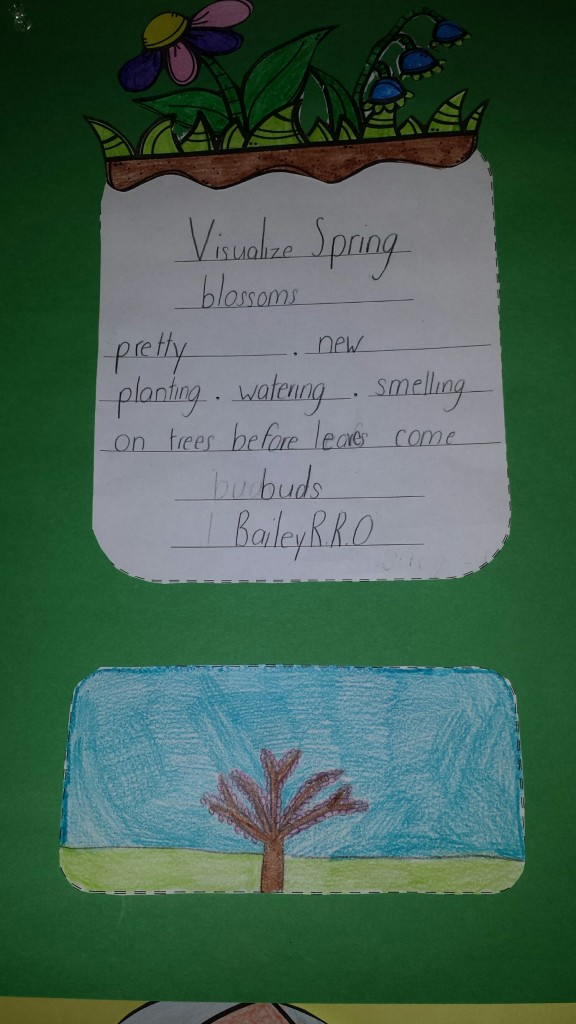 Visualize Spring
blossoms
pretty . new
planting . watering . smelling
on trees before leaves come
buds
Bailey R.R.O